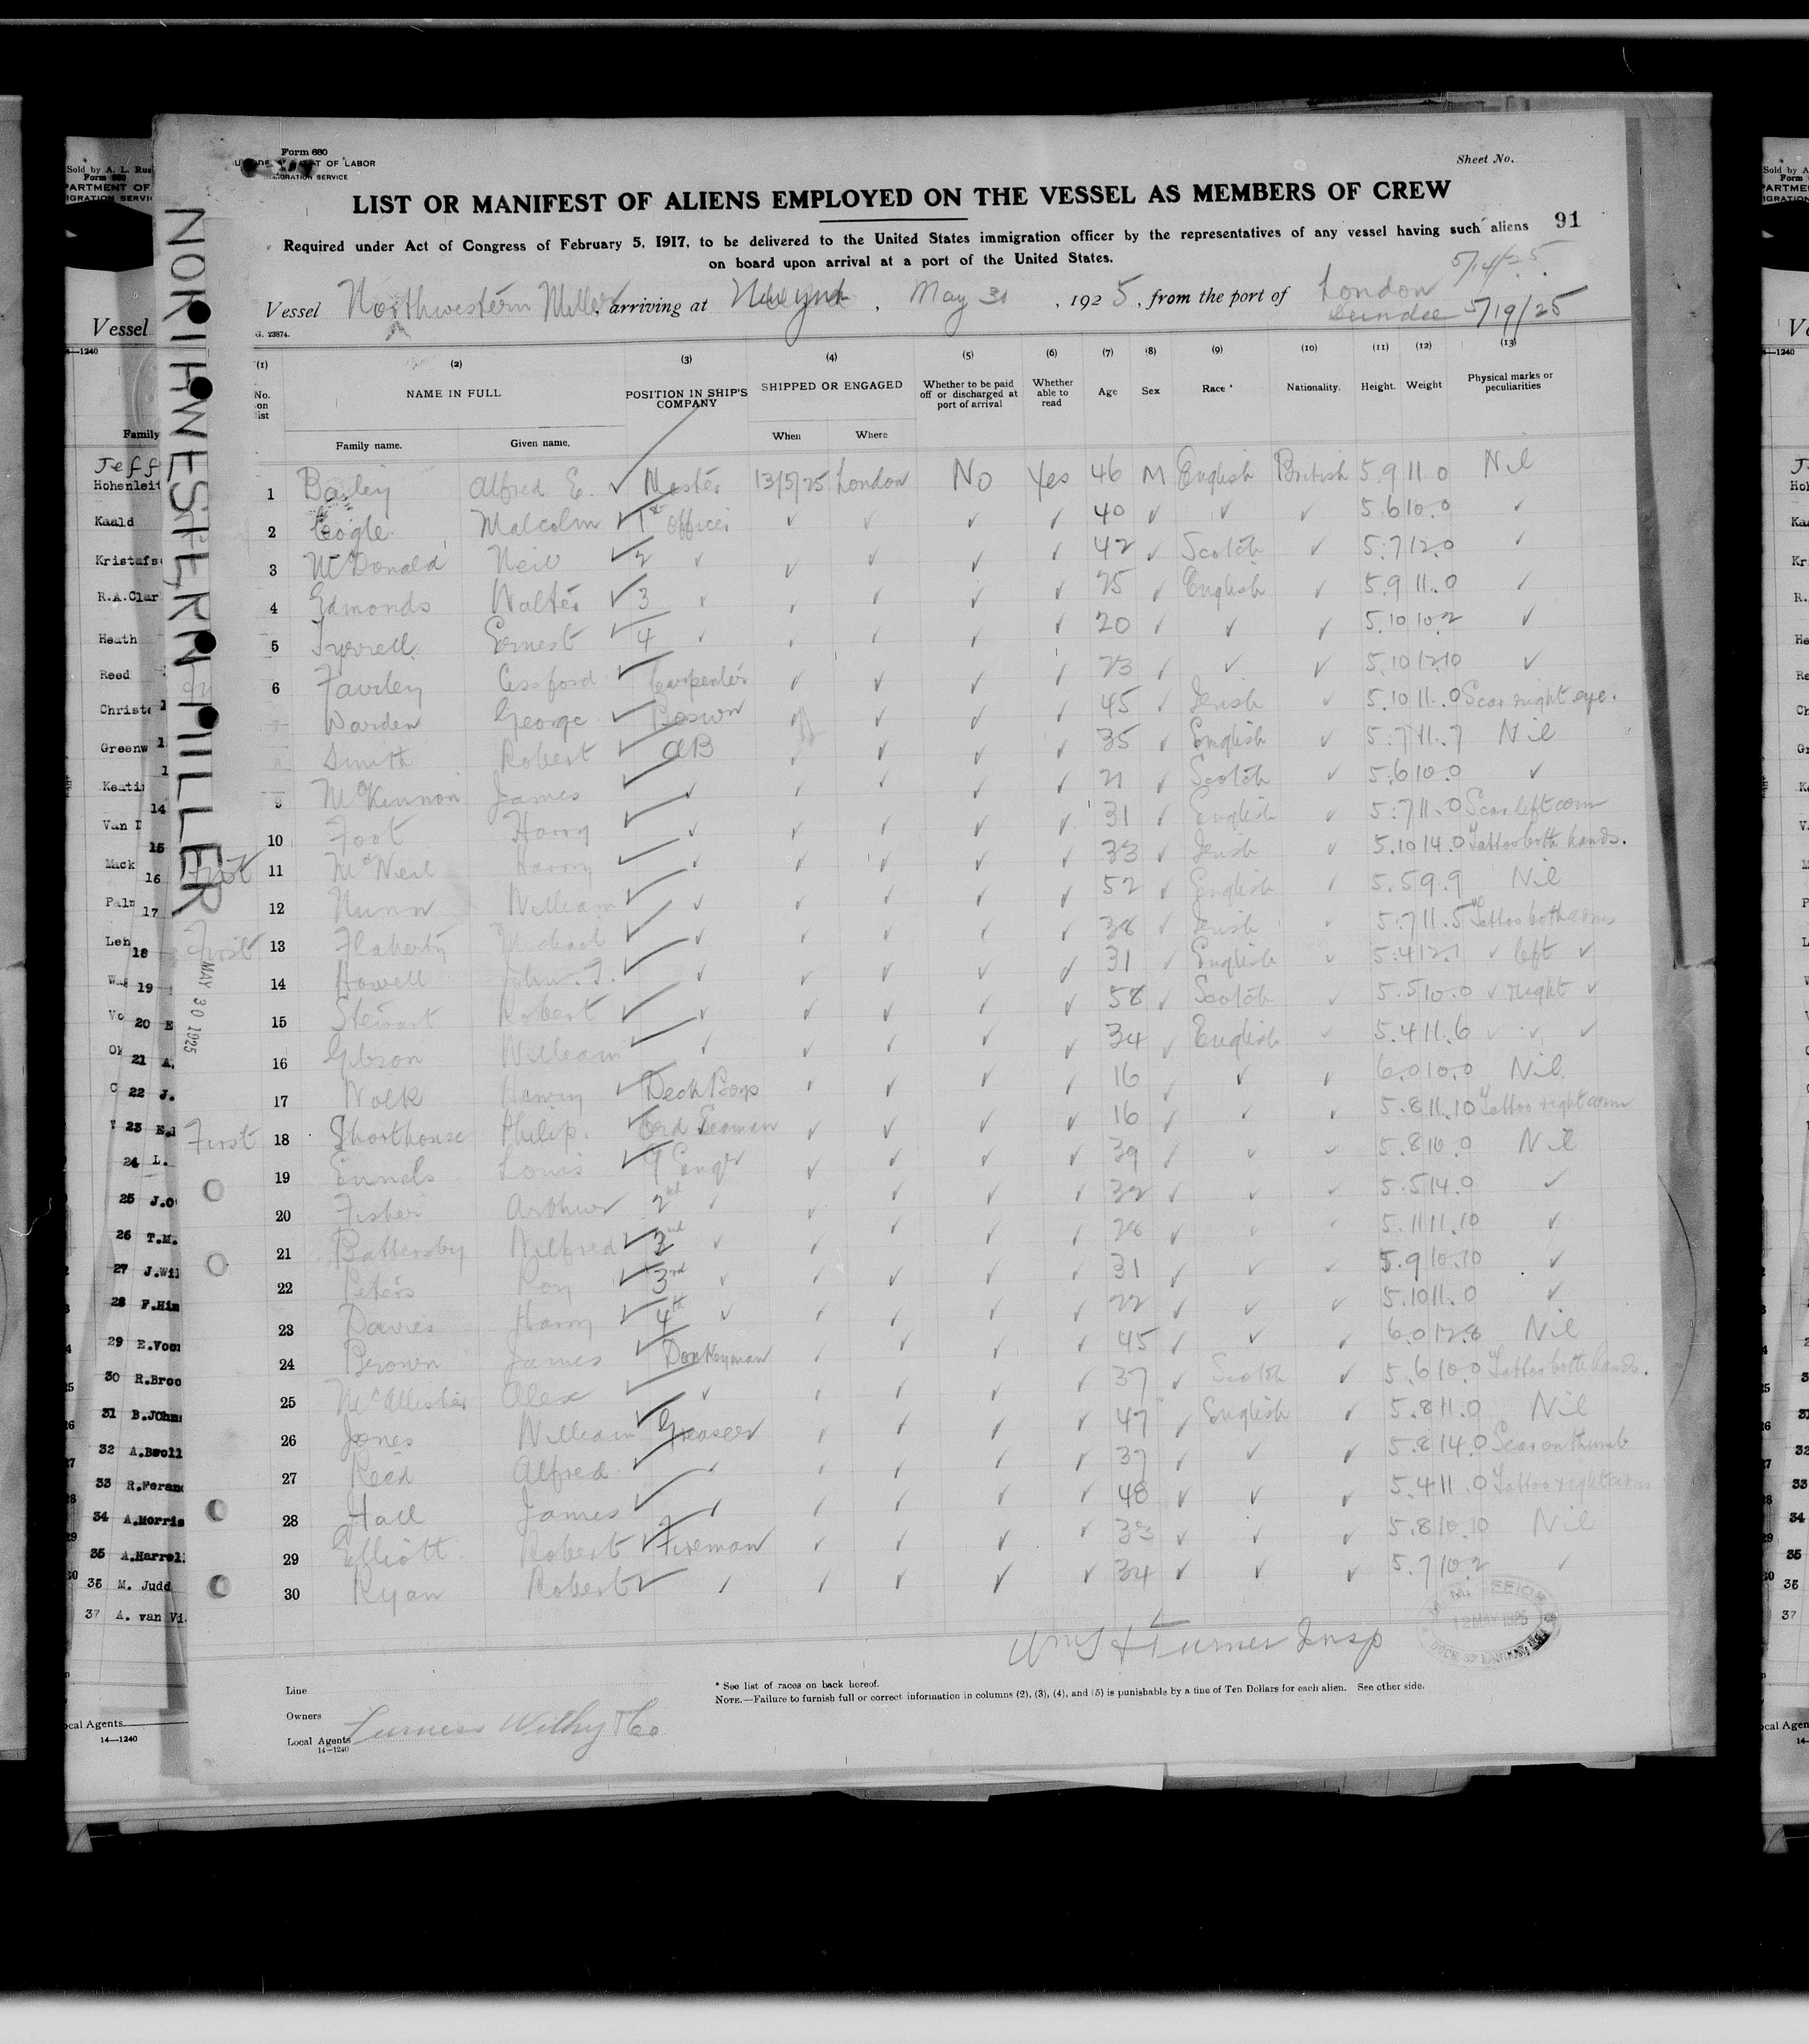 Form 680
OF LABOR
IMMIGRATION SERVICE
Sheet No.
LIST OR MANIFEST OF ALIENS EMPLOYED ON THE VESSEL AS MEMBERS OF CREW
91
Required under Act of Congress of February 5, 1917, to be delivered to the United States immigration officer by the representatives of any vessel having such aliens
on board upon arrival at a port of the United States.
5/14/25
Vessel Northwestern Miller, arriving at New York, May 30, 1925, from the port of London
Dundee 5/19/25
G. 23874.
(1) (2) (3) (4) (5) (6) (7) (8) (9) (10) (11) (12) (13)
No. on list NAME IN FULL POSITION IN SHIP'S COMPANY SHIPPED OR ENGAGED Whether to be paid off or discharged at port of arrival Whether able to read Age Sex Race* Nationality. Height. Weight Physical marks or peculiarities
Family name. Given name. When Where
1 Bailey Alfred E. ✓ Master 13/5/25 London No Yes 46 M English British 5.9 11.0 Nil
2 Cogle Malcolm ✓ 1st Officer ✓ ✓ ✓ ✓ 40 ✓ ✓ ✓ 5.6 10.0 ✓
3 McDonald Neil ✓ 2 ✓ ✓ ✓ ✓ ✓ 42 ✓ Scotch ✓ 5.7 12.0 ✓
4 Edmonds Walter ✓ 3 ✓ ✓ ✓ ✓ ✓ 25 ✓ English ✓ 5.9 11.0 ✓
5 Tyrrell Ernest ✓ 4 ✓ ✓ ✓ ✓ ✓ 20 ✓ ✓ ✓ 5.10 10.2 ✓
6 Fawley Cessford ✓ Carpenter ✓ ✓ ✓ ✓ 23 ✓ ✓ ✓ 5.10 12.10 ✓
7 Warden George ✓ Boswn ✓ ✓ ✓ ✓ 45 ✓ Irish ✓ 5.10 11.0 Scar right eye.
8 Smith Robert ✓ AB ✓ ✓ ✓ ✓ 35 ✓ English ✓ 5.7 11.7 Nil
9 McKinnon James ✓ ✓ ✓ ✓ ✓ ✓ 21 ✓ Scotch ✓ 5.6 10.0 ✓
10 Foot Harry ✓ ✓ ✓ ✓ ✓ ✓ 31 ✓ English ✓ 5.7 11.0 Scar left arm
First 11 McNeil Harry ✓ ✓ ✓ ✓ ✓ ✓ 33 ✓ Irish ✓ 5.10 14.0 Tattoo both hands.
12 Nunn William ✓ ✓ ✓ ✓ ✓ ✓ 52 ✓ English ✓ 5.5 9.9 Nil
First 13 Flaherty Michael ✓ ✓ ✓ ✓ ✓ ✓ 38 ✓ Irish ✓ 5.7 11.5 Tattoo both arms
14 Howell John. T. ✓ ✓ ✓ ✓ ✓ ✓ 31 ✓ English ✓ 5.4 12.1 ✓ left ✓
15 Stewart Robert ✓ ✓ ✓ ✓ ✓ ✓ 58 ✓ Scotch ✓ 5.5 10.0 ✓ right ✓
16 Gibson William ✓ ✓ ✓ ✓ ✓ 34 ✓ English ✓ 5.4 11.6 ✓ ✓ ✓
17 Wolk ✓ Deck Boy ✓ ✓ ✓ ✓ 16 ✓ ✓ ✓ 6.0 10.0 Nil
First 18 Shorthouse Philip. ✓ Ord Seaman ✓ ✓ ✓ ✓ 16 ✓ ✓ ✓ 5.8 11.10 Tattoo right arm
19 Ennels Louis ✓ ✓ ✓ ✓ ✓ 39 ✓ ✓ ✓ 5.8 10.0 Nil
20 Fisher Arthur 2nd ✓ ✓ ✓ ✓ ✓ 32 ✓ ✓ ✓ 5.5 14.0 ✓
21 Battersby Wilfred ✓ 2nd ✓ ✓ ✓ ✓ ✓ 28 ✓ ✓ ✓ 5.11 11.10 ✓
22 Peters Roy ✓ 3rd ✓ ✓ ✓ ✓ ✓ 31 ✓ ✓ ✓ 5.9 10.10 ✓
23 Davies Harry ✓ 4th ✓ ✓ ✓ ✓ ✓ 22 ✓ ✓ ✓ 5.10 11.0 ✓
24 Brown James ✓ Donkeyman ✓ ✓ ✓ ✓ 45 ✓ ✓ ✓ 6.0 12.8 Nil
25 McAllister Alex ✓ ✓ ✓ ✓ ✓ ✓ 37 ✓ Scotch ✓ 5.6 10.0 Tattoo both hands.
26 Jones William ✓ Greaser ✓ ✓ ✓ ✓ 47 ✓ English ✓ 5.8 11.0 Nil
27 Reed Alfred ✓ ✓ ✓ ✓ ✓ ✓ 37 ✓ ✓ ✓ 5.8 14.0 Scar on thumb
28 Hall James ✓ ✓ ✓ ✓ ✓ ✓ 48 ✓ ✓ ✓ 5.4 11.0 Tattoo right arm
29 Elliott Robert ✓ Fireman ✓ ✓ ✓ ✓ 33 ✓ ✓ ✓ 5.8 10.10 Nil
30 Ryan Robert ✓ ✓ ✓ ✓ ✓ ✓ 34 ✓ ✓ ✓ 5.7 10.2 ✓
Turner Insp
12 MAY 1925
* See list of races on back hereof.
NOTE.—Failure to furnish full or correct information in columns (2), (3), (4), and (5) is punishable by a fine of Ten Dollars for each alien. See other side.
Line
Owners
Local Agents Furness Withy & Co
14—1240
NORTHWESTERN MILLER
MAY 30 1925
Sold by A. L. Rus
Form 680
PARTMENT OF
Vessel
Family
Jeff
Hohenleit
Kaald
Kristafs
R.A.Clar
Heath
Reed
Christe
Greenw
Keati
14
Van D
15
Mack
16
Palm
17
Leh
18
19
20 E
21 A.
22 J.
23 E.
24 L.
25 J.o
26 T.M.
27 J.Wil
28 F.Him
29 E.Voor
30 R.Broo
31 B.JOhn
32 A.Bwoll
33 R.Feran
34 A.Morris
35 A.Harrel
36 M. Judd
37 A. van Vi
ocal Agents
14—1240